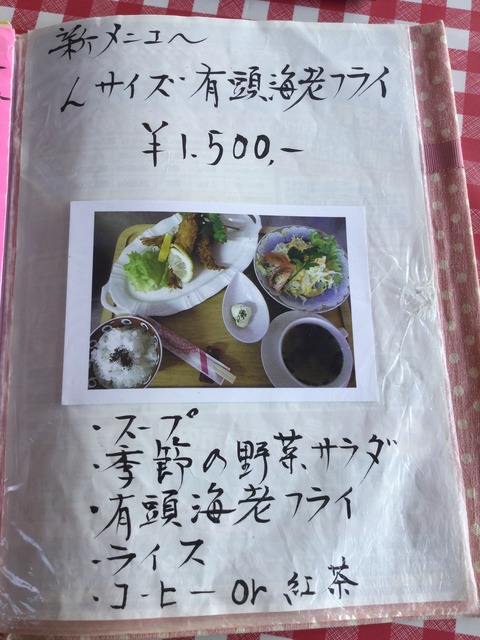 新メニュー
Lサイズ有頭海老フライ
¥1.500,-
・スープ
・季節の野菜サラダ
・有頭海老フライ
・ライス
・コーヒー or 紅茶